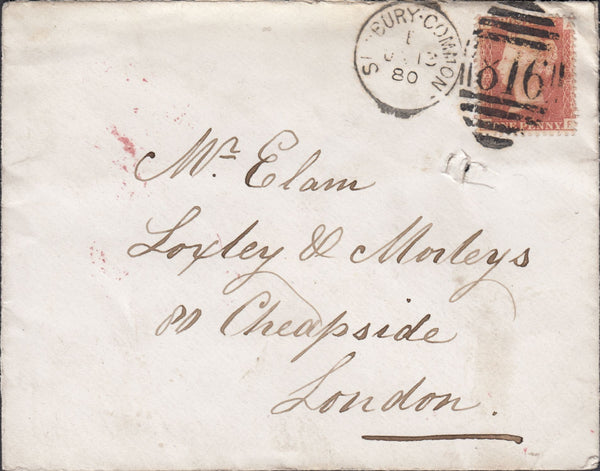 BURY·COMMON
80
816
ONE PENNY
Mr. Elam
Loxley & Morleys
80 Cheapside
London.